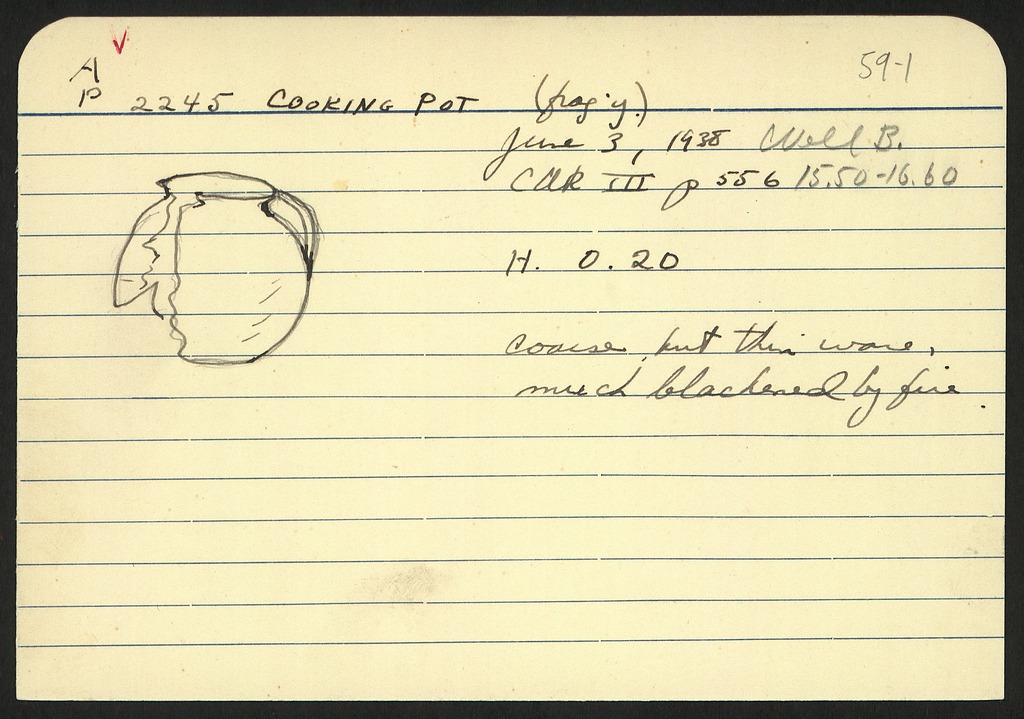 V
A
59-1
P 2245 COOKING POT (frag'y.)
June 3, 1938 Well B.
CUR III p 556 15.50-16.60
H. 0.20
coarse, but thin ware,
much blackened by fire.